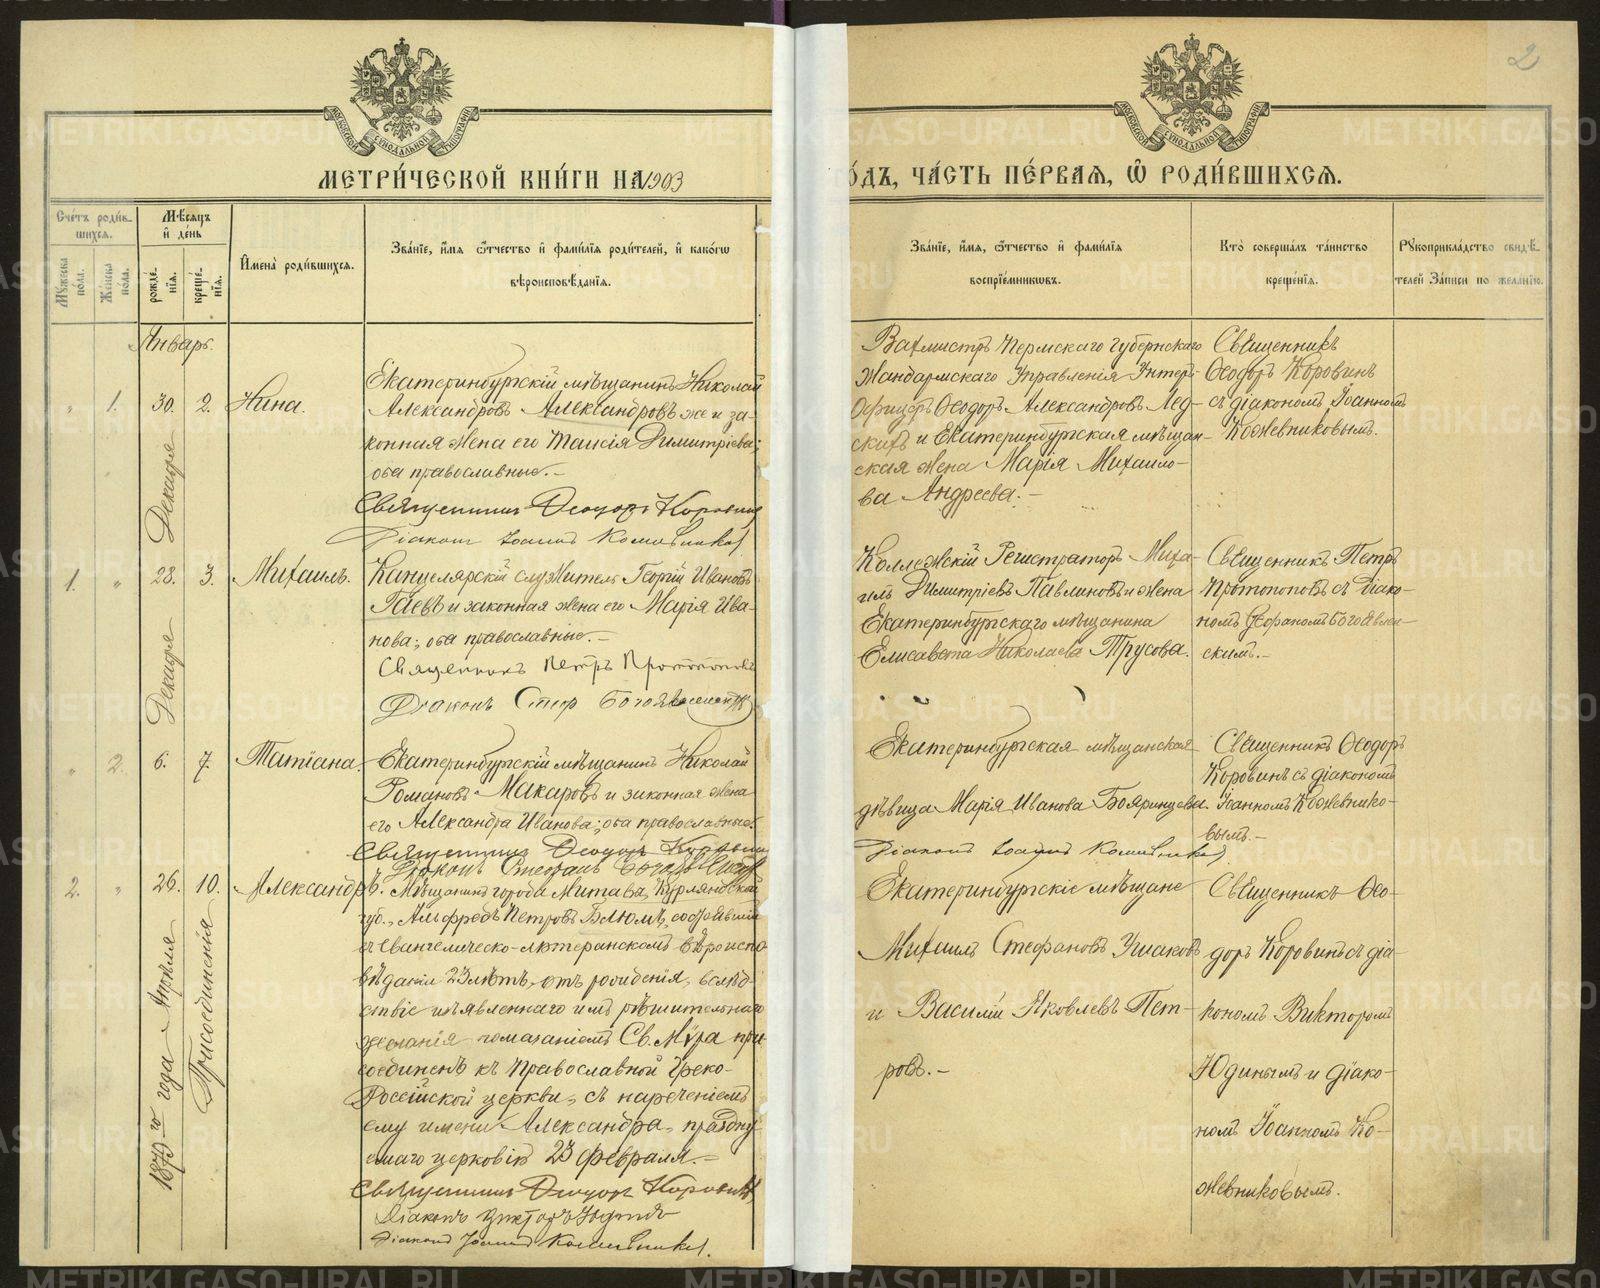 2
МЕТРИ́ЧЕСКОЙ КНИ́ГИ НА 1903
О́ДЪ, ЧА́СТЬ ПЕ́РВАѦ, Ѡ҆ РОДИ́ВШИХСѦ.
Сче́тъ роди́в-
шихсѧ.
Мѣ́сѧцъ
и҆ де́нь
Мꙋ́жеска по́ла.
Же́нска по́ла.
рожде́-
нїѧ.
креще́-
нїѧ.
И҆мена̀ роди́вшихсѧ.
Зва́нїе, и҆́мѧ Ѻ҆́тчество и҆ фами́лїѧ роди́телей, и҆ како́гѡ
вѣроисповѣ́данїѧ.
Зва́нїе, и҆́мѧ, ѻ҆́тчество и҆ фами́лїѧ
воспрїе́мникѡвъ.
Кто̀ соверша́лъ та́инство
креще́нїѧ.
Рꙋкоприкла́дство свидѣ́-
телей За́писи по жела́нїю.
Январь.
" 1. 30. 2. Нина.
Декабря
Екатеринбургскій мѣщанинъ Николай
Александровъ Александровъ же и за-
конная жена его Таисія Димитріева;
оба православные.-
Священникъ Ѳеодоръ Коровинъ
Діаконъ Іоаннъ Кожевниковъ
Вахмистръ Пермскаго Губернскаго
Жандармскаго Управленія Унтеръ
Офицеръ Ѳеодоръ Александровъ Лед-
скихъ и Екатеринбургская мѣщан-
ская жена Марія Михаило-
ва Андреева.-
Священникъ
Ѳеодоръ Коровинъ
съ діакономъ Іоанномъ
Кожевниковымъ.
1. " 28. 3. Михаилъ.
Декабря
Канцелярскій служитель Георгій Ивановъ
Гаевъ и законная жена его Марія Ива-
нова; оба православные.-
Священникъ Петръ Протопоповъ
Діаконъ Стеф Богоявленскій
Коллежскій Регистраторъ Миха-
илъ Димитріевъ Павлиновъ и жена
Екатеринбургскаго мѣщанина
Елисавета Николаева Трусова.
Священникъ Петръ
Протопоповъ съ діако-
номъ Стефаномъ Богоявлен-
скимъ.-
" 2. 6. 7. Татіана.
Екатеринбургскій мѣщанинъ Николай
Романовъ Макаровъ и законная жена
его Александра Иванова; оба православные.
Священникъ Ѳеодоръ Коровинъ
Діаконъ Стефанъ Богоявленскій
Екатеринбургская мѣщанская
дѣвица Марія Иванова Бояринцева.
Діаконъ Іоаннъ Кожевниковъ
Священникъ Ѳеодоръ
Коровинъ съ діакономъ
Іоанномъ Кожевнико-
вымъ.-
2. " 26. 10. Александръ.
1879 го года Апрѣля
Присоединенія
Мѣщанинъ города Митавы, Курляндской
губ., Альфредъ Петровъ Блюмъ, состоявшій
въ Евангелическо-лютеранскомъ вѣроиспо-
вѣданіи 23 лѣтъ отъ рожденія, вслѣд-
ствіе изъявленнаго имъ рѣшительнаго
желанія помазаніемъ Св. Мѵра при-
соединенъ къ Православной Греко-
Россійской церкви, съ нареченіемъ
ему имени Александра, праздну-
емаго церковію 23 февраля.-
Священникъ Ѳеодоръ Коровинъ
Діаконъ Викторъ Юдинъ
Діаконъ Іоаннъ Кожевниковъ.
Екатеринбургскіе мѣщане
Михаилъ Стефановъ Ушаковъ
и Василій Яковлевъ Пет-
ровъ.-
Священникъ Ѳео-
доръ Коровинъ съ діа-
кономъ Викторомъ
Юдинымъ и діако-
номъ Іоанномъ Ко-
жевниковымъ.